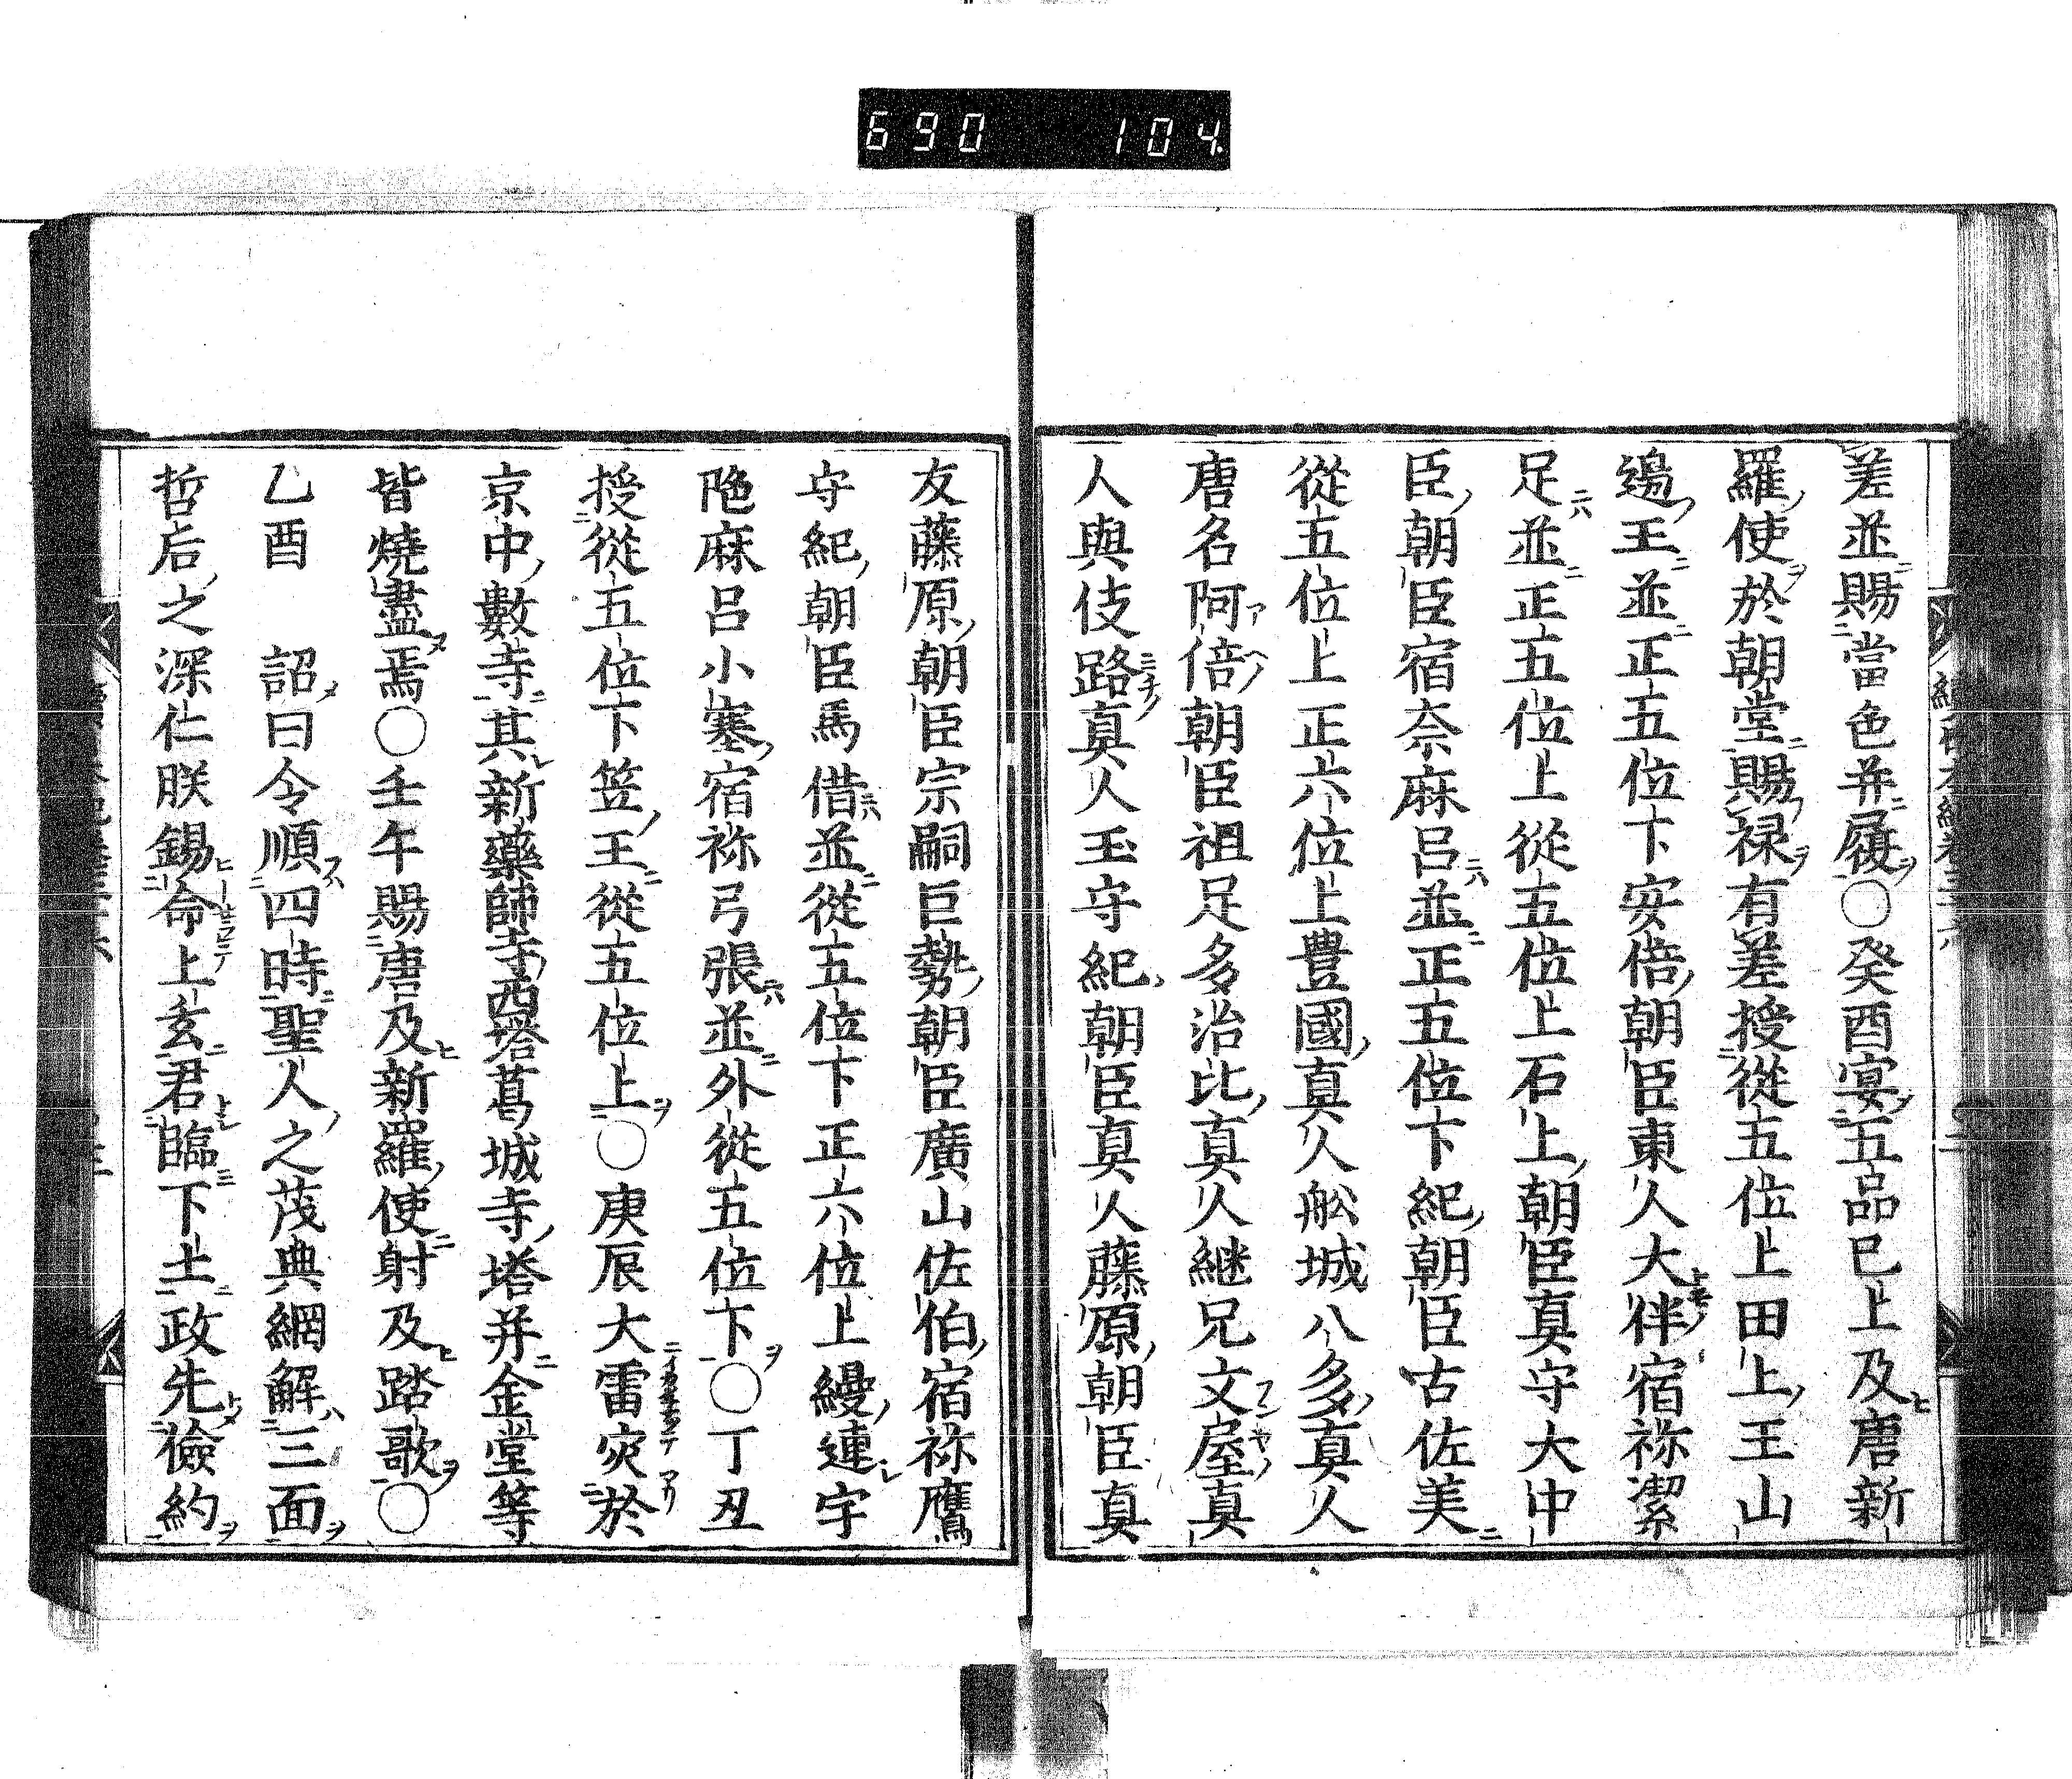 690 104.
差並賜當色并履○癸酉宴五品已上及唐新
羅使於朝堂賜禄有差授從五位上田上王山
邊王並正五位下安倍朝臣東人大伴宿祢潔
足並正五位上從五位上石上朝臣真守大中
臣朝臣宿奈麻呂並正五位下紀朝臣古佐美
從五位上正六位上豊國真人舩城八多真人
唐名阿倍朝臣祖足多治比真人継兄文屋真
人與伎路真人玉守紀朝臣真人藤原朝臣真
友藤原朝臣宗嗣巨勢朝臣廣山佐伯宿祢鷹
守紀朝臣馬借並從五位下正六位上縵連宇
陁麻呂小塞宿祢弓張並外從五位下○丁丑
授從五位下笠王從五位上○庚辰大雷灾於
京中數寺其新藥師寺西塔葛城寺塔并金堂等
皆燒盡焉○壬午賜唐及新羅使射及踏歌○
乙酉 詔曰令順四時聖人之茂典網解三面
哲后之深仁朕錫命上玄君臨下土政先儉約